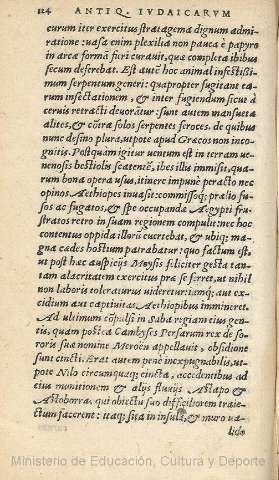 124 ANTIQ. IVDAICARVM
curum iter exercitus stratagema dignum admi-
ratione: uasa enim plexilia non pauca è papyro
in arcæ formã fieri curauit, quæ completa ibibus
secum deferebat. Est autē hoc animal infestissi-
mum serpentum generi: quapropter fugitant ea-
rum insectationem, & inter fugiendum sicut à
ceruis retracti deuorãtur: sunt autem mansuetæ
alites, & cõtra solos serpentes feroces. de quibus
nunc desino plura, utpote apud Græcos non inco-
gnitis. Postquam igitur uentum est in terram ue-
nenosis bestiolis scatentē, ibes illis immisit, qua-
rum bona opera usus, itinere impunè peracto nec
opinos Aethiopes inuasit: commissoq; prælio fu-
sos ac fugatos, & spe occupandæ Aegypti fru-
stratos retro in suam regionem compulit: nec hoc
contentus oppida illorũ euertebat, & ubiq; ma-
gna cædes hostium patrabatur: quo factum est,
ut post hæc auspicijs Moysis feliciter gesta tan-
tam alacritatem exercitus præ se ferret, ut nihil
non laboris toleraturus uideretur: iamq; aut ex-
cidium aut captiuitas Aethiopibus imminerent.
Ad ultimum cõpulsi in Saba regiam eius gen-
tis, quam postea Cambyses Persarum rex de so-
roris suæ nomine Meroën appellauit, obsidione
sunt cincti. Erat autem penè inexpugnabilis, ut-
pote Nilo circumquaq; cincta, accedentibus ad
eius munitionem & alijs fluuijs Astapo &
Astobora, qui obiectu suo difficilorem traie-
ctum facerent: itaq; sita in insula, & muro ua-
lido
Ministerio de Educación, Cultura y Deporte